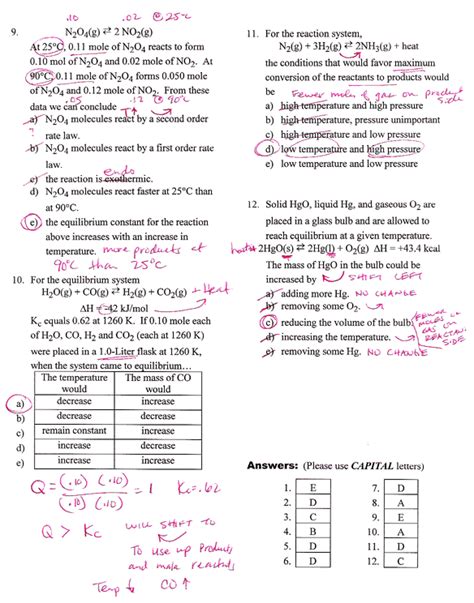 .10 .02 @ 25°C
9. N₂O₄(g) ⇄ 2 NO₂(g)
At 25°C, 0.11 mole of N₂O₄ reacts to form
0.10 mol of N₂O₄ and 0.02 mole of NO₂. At
90°C, 0.11 mole of N₂O₄ forms 0.050 mole
of N₂O₄ and 0.12 mole of NO₂. From these
.05 .12 @ 90°C
data we can conclude
a) N₂O₄ molecules react by a second order
rate law.
b) N₂O₄ molecules react by a first order rate
law.
endo
c) the reaction is exothermic.
d) N₂O₄ molecules react faster at 25°C than
at 90°C.
e) the equilibrium constant for the reaction
above increases with an increase in
temperature. more products at
90°C than 25°C
10. For the equilibrium system
H₂O(g) + CO(g) ⇄ H₂(g) + CO₂(g) + Heat
ΔH = -42 kJ/mol
Kc equals 0.62 at 1260 K. If 0.10 mole each
of H₂O, CO, H₂ and CO₂ (each at 1260 K)
were placed in a 1.0-Liter flask at 1260 K,
when the system came to equilibrium…
The temperature would The mass of CO would
a) decrease increase
b) decrease decrease
c) remain constant increase
d) increase decrease
e) increase increase
Q = (.10)(.10) / (.10)(.10) = 1 Kc = .62
Q > Kc will shift to
To use up Products
and make reactants
Temp ↓ CO ↑
11. For the reaction system,
N₂(g) + 3H₂(g) ⇄ 2NH₃(g) + heat
the conditions that would favor maximum
conversion of the reactants to products would
be Fewer moles of gas on product
side
a) high temperature and high pressure
b) high temperature, pressure unimportant
c) high temperature and low pressure
d) low temperature and high pressure
e) low temperature and low pressure
12. Solid HgO, liquid Hg, and gaseous O₂ are
placed in a glass bulb and are allowed to
reach equilibrium at a given temperature.
heat + 2HgO(s) ⇄ 2Hg(l) + O₂(g) ΔH = +43.4 kcal
The mass of HgO in the bulb could be
increased by SHIFT LEFT
a) adding more Hg. NO CHANGE
b) removing some O₂.
c) reducing the volume of the bulb.
d) increasing the temperature.
e) removing some Hg. NO CHANGE
FEWER
MOLES OF
GAS ON
REACTANT
SIDE
Answers: (Please use CAPITAL letters)
1. E 7. D
2. D 8. A
3. C 9. E
4. B 10. A
5. D 11. D
6. D 12. C